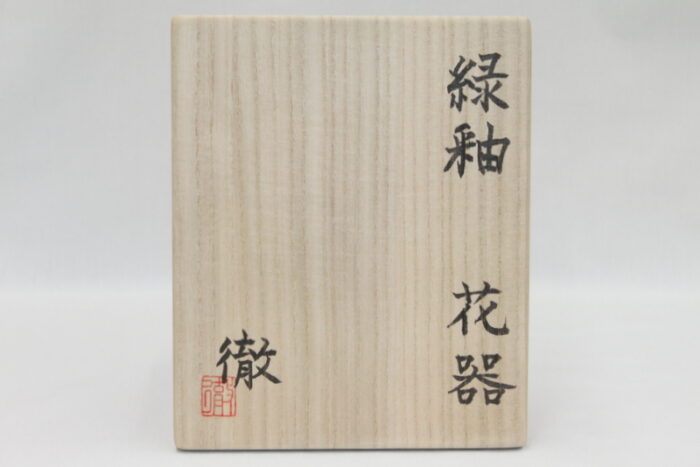 緑釉 花器
徹
徹